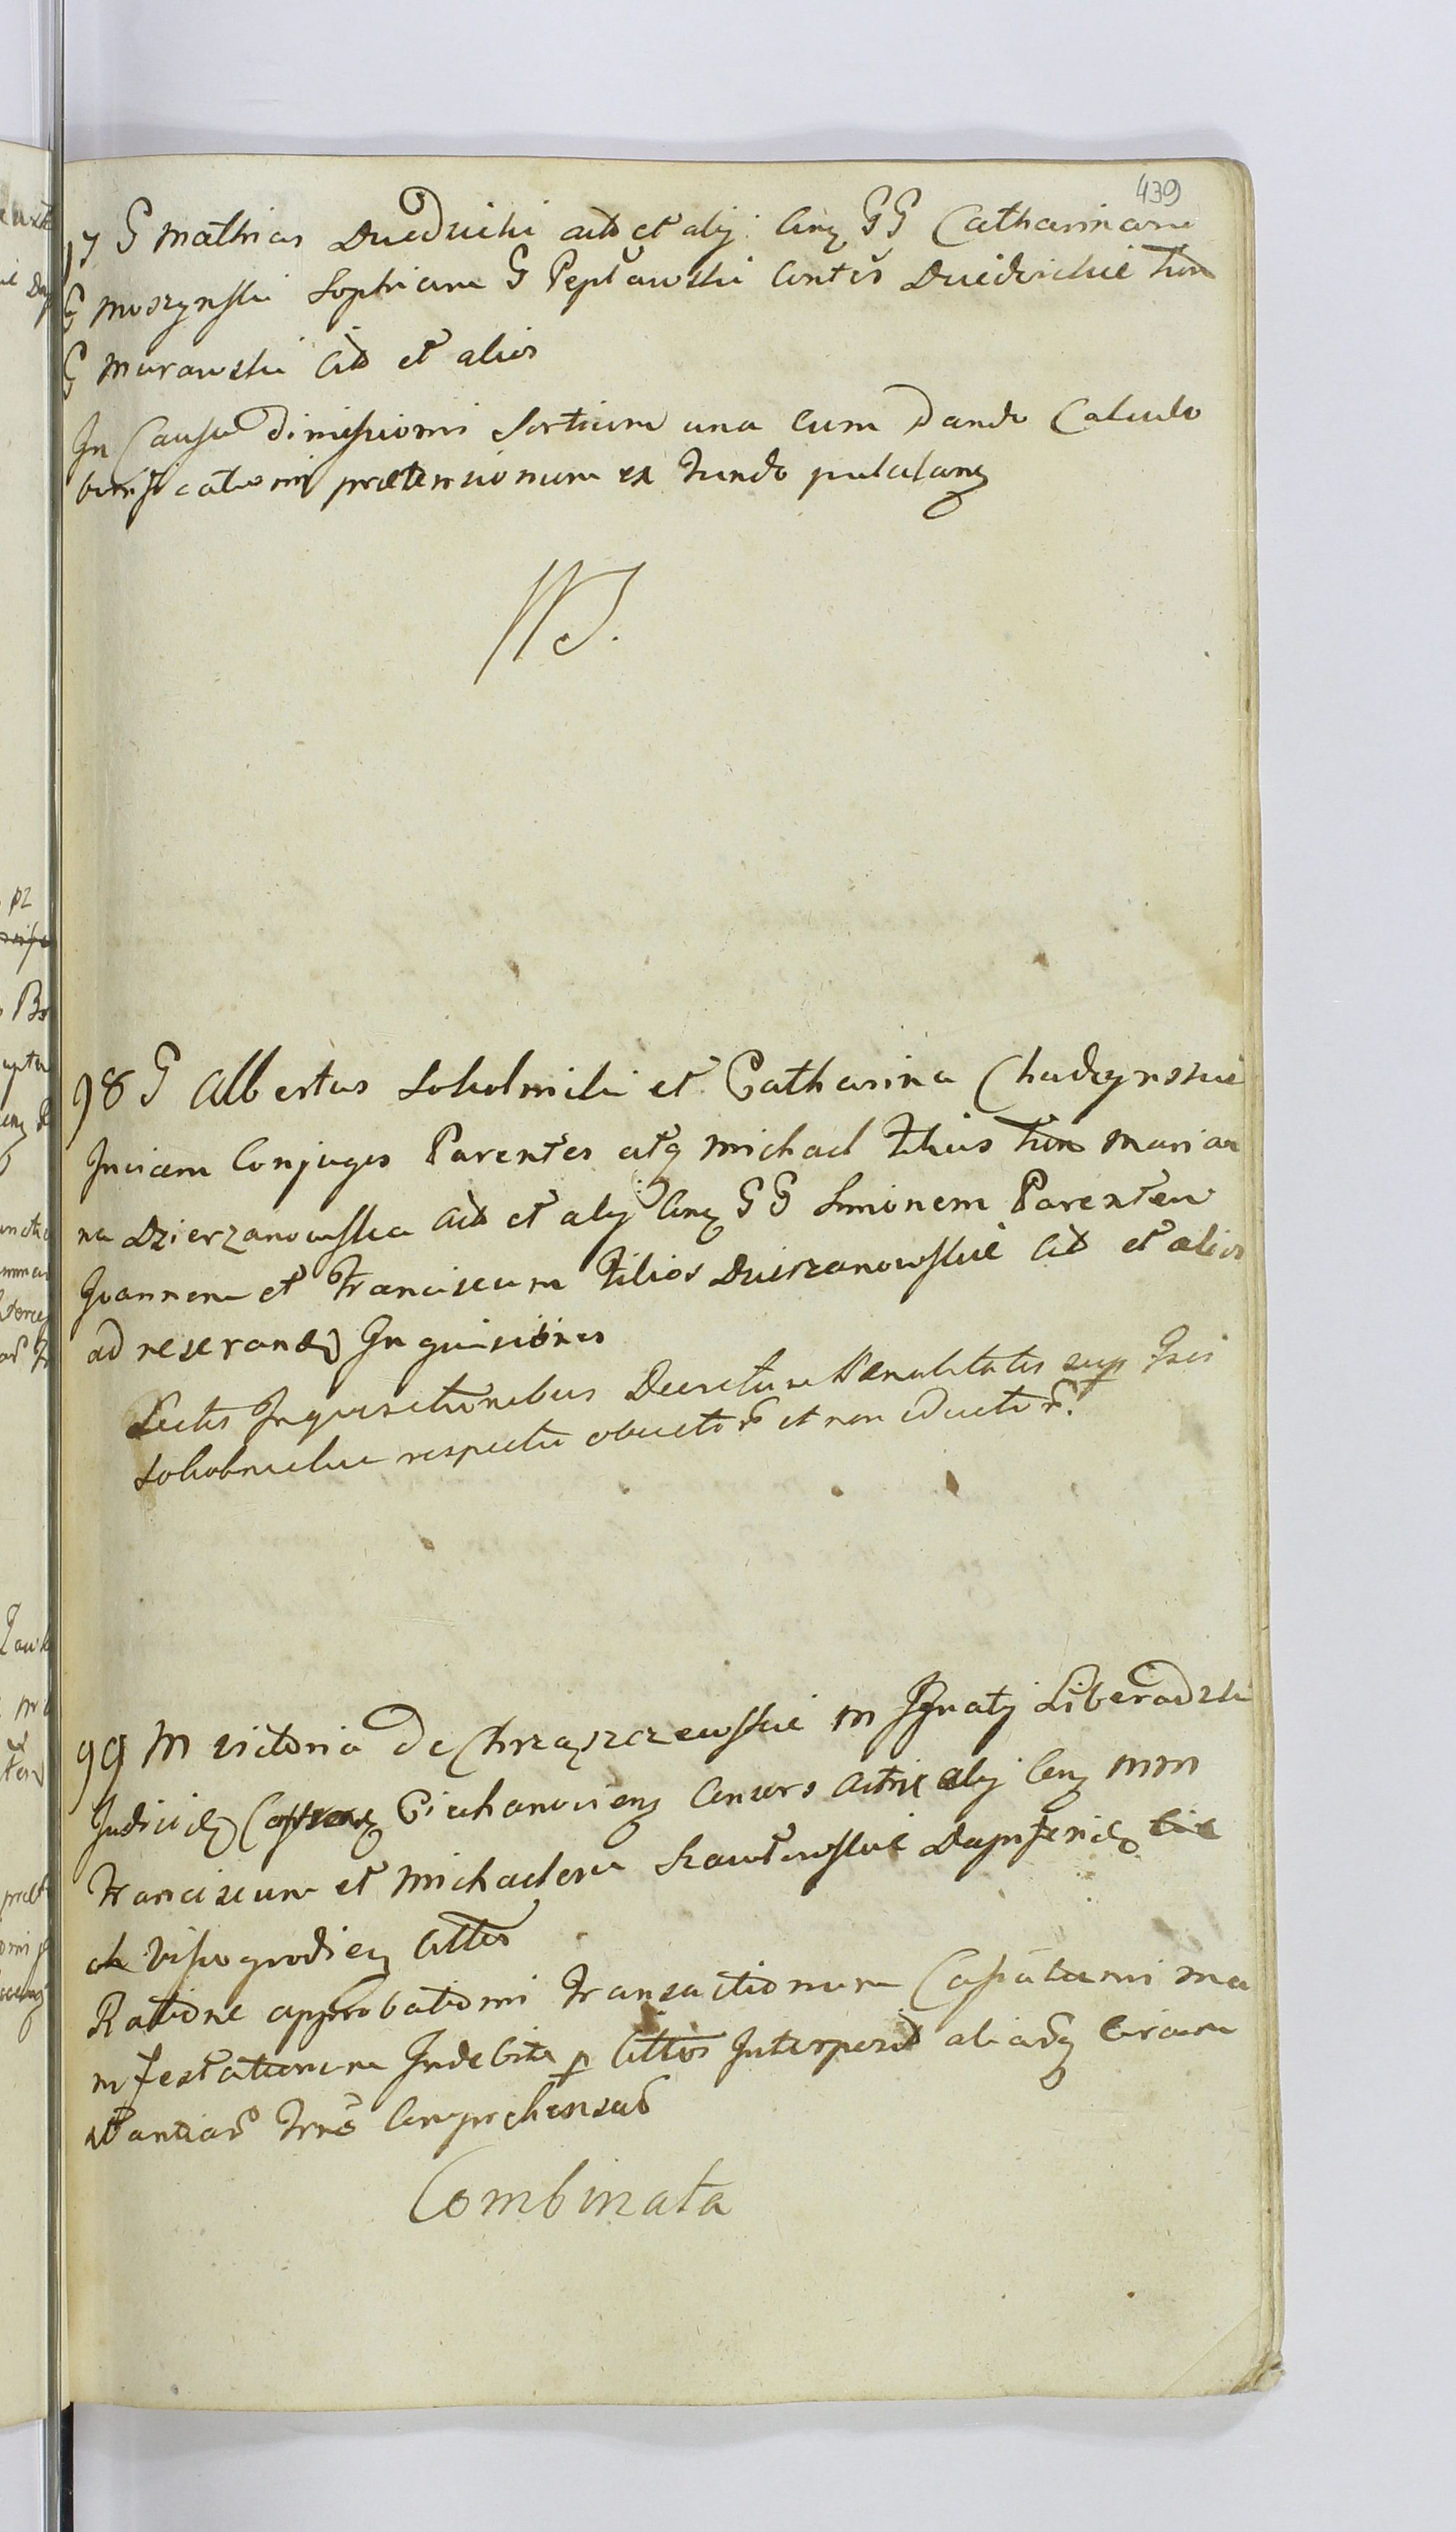 439
97 G Mathias Duedzicki act et alij Cing GG Catharinam
G Moszynski Sophiam G Peplawski Contes Duedzickie tum
G Murawski Cit et alios
In Causa Dimissionis Sortium una cum Dando Calculo
Verificationis praetensionum ex Fundo pululang
98 G Albertus Sokolnicki et Catharina Chadzynskie
Invicem Conjuges Parentes atq Michael Filius tum Marian
na Dzierzanowska Act et alij Cing GG Simonem Parentem
Joannem et Franciscum Filios Dzierzanowskie Cit et alios
ad reserand Inquisitiones
Lectis Inquisitionibus Decretum Venalitatis sup Gsis
Sokolnickie respectu obiector et non eductor
99 M Victoria de Chrząszczewskie M Ignatij Liberadzki
Judicis Ciechanovieng Consors Actrix alij Cing MM
Franciscum et Michaelem Szawlowskie Dapiferid
Wissogrodieng Cittos
Ratione approbationis Transactionum Cassationis ma
nifestationum Indebite p Cittos Interposit aliasq Circum
stantias Trnis Comprehensas
Combinata